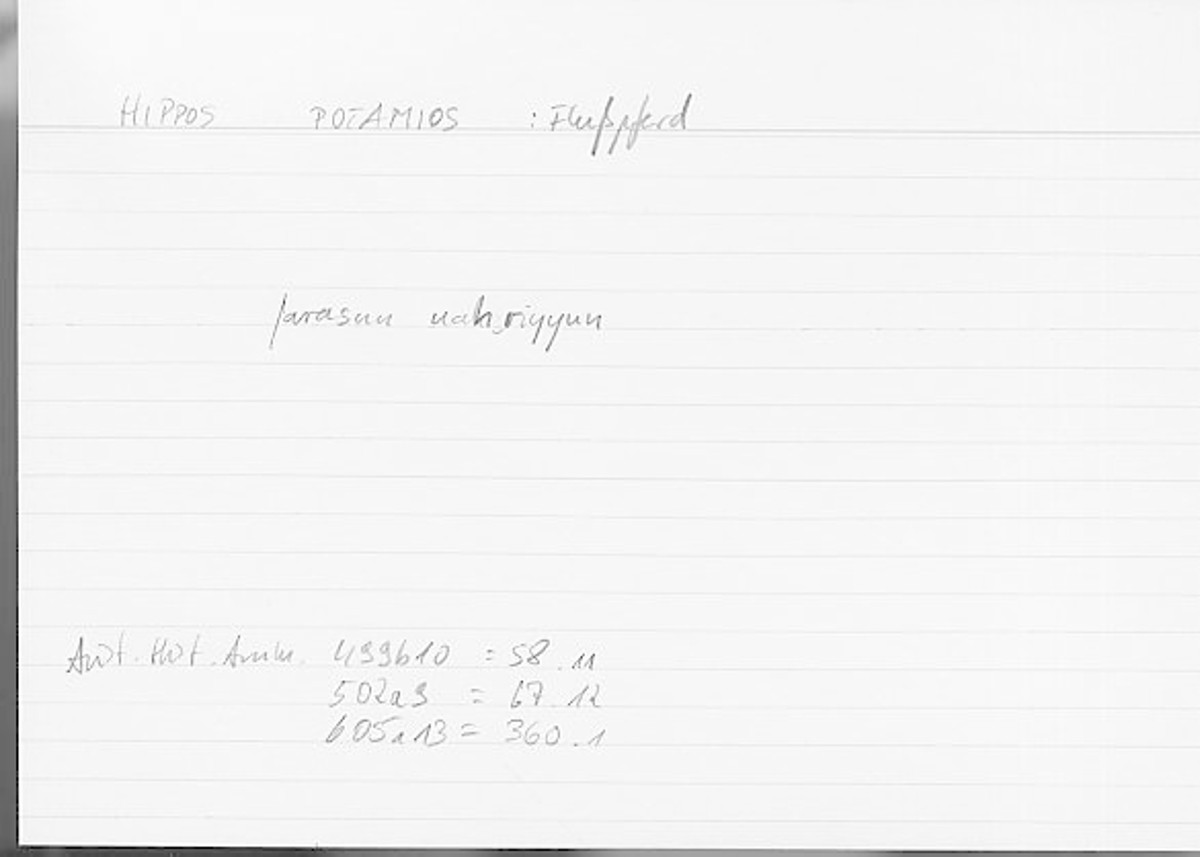 HIPPOS POTAMIOS : Flußpferd
farasun nahriyyun
Arist. Hist. Anim. 499b10 = 58.11
502a9 = 67.12
605a13 = 360.1